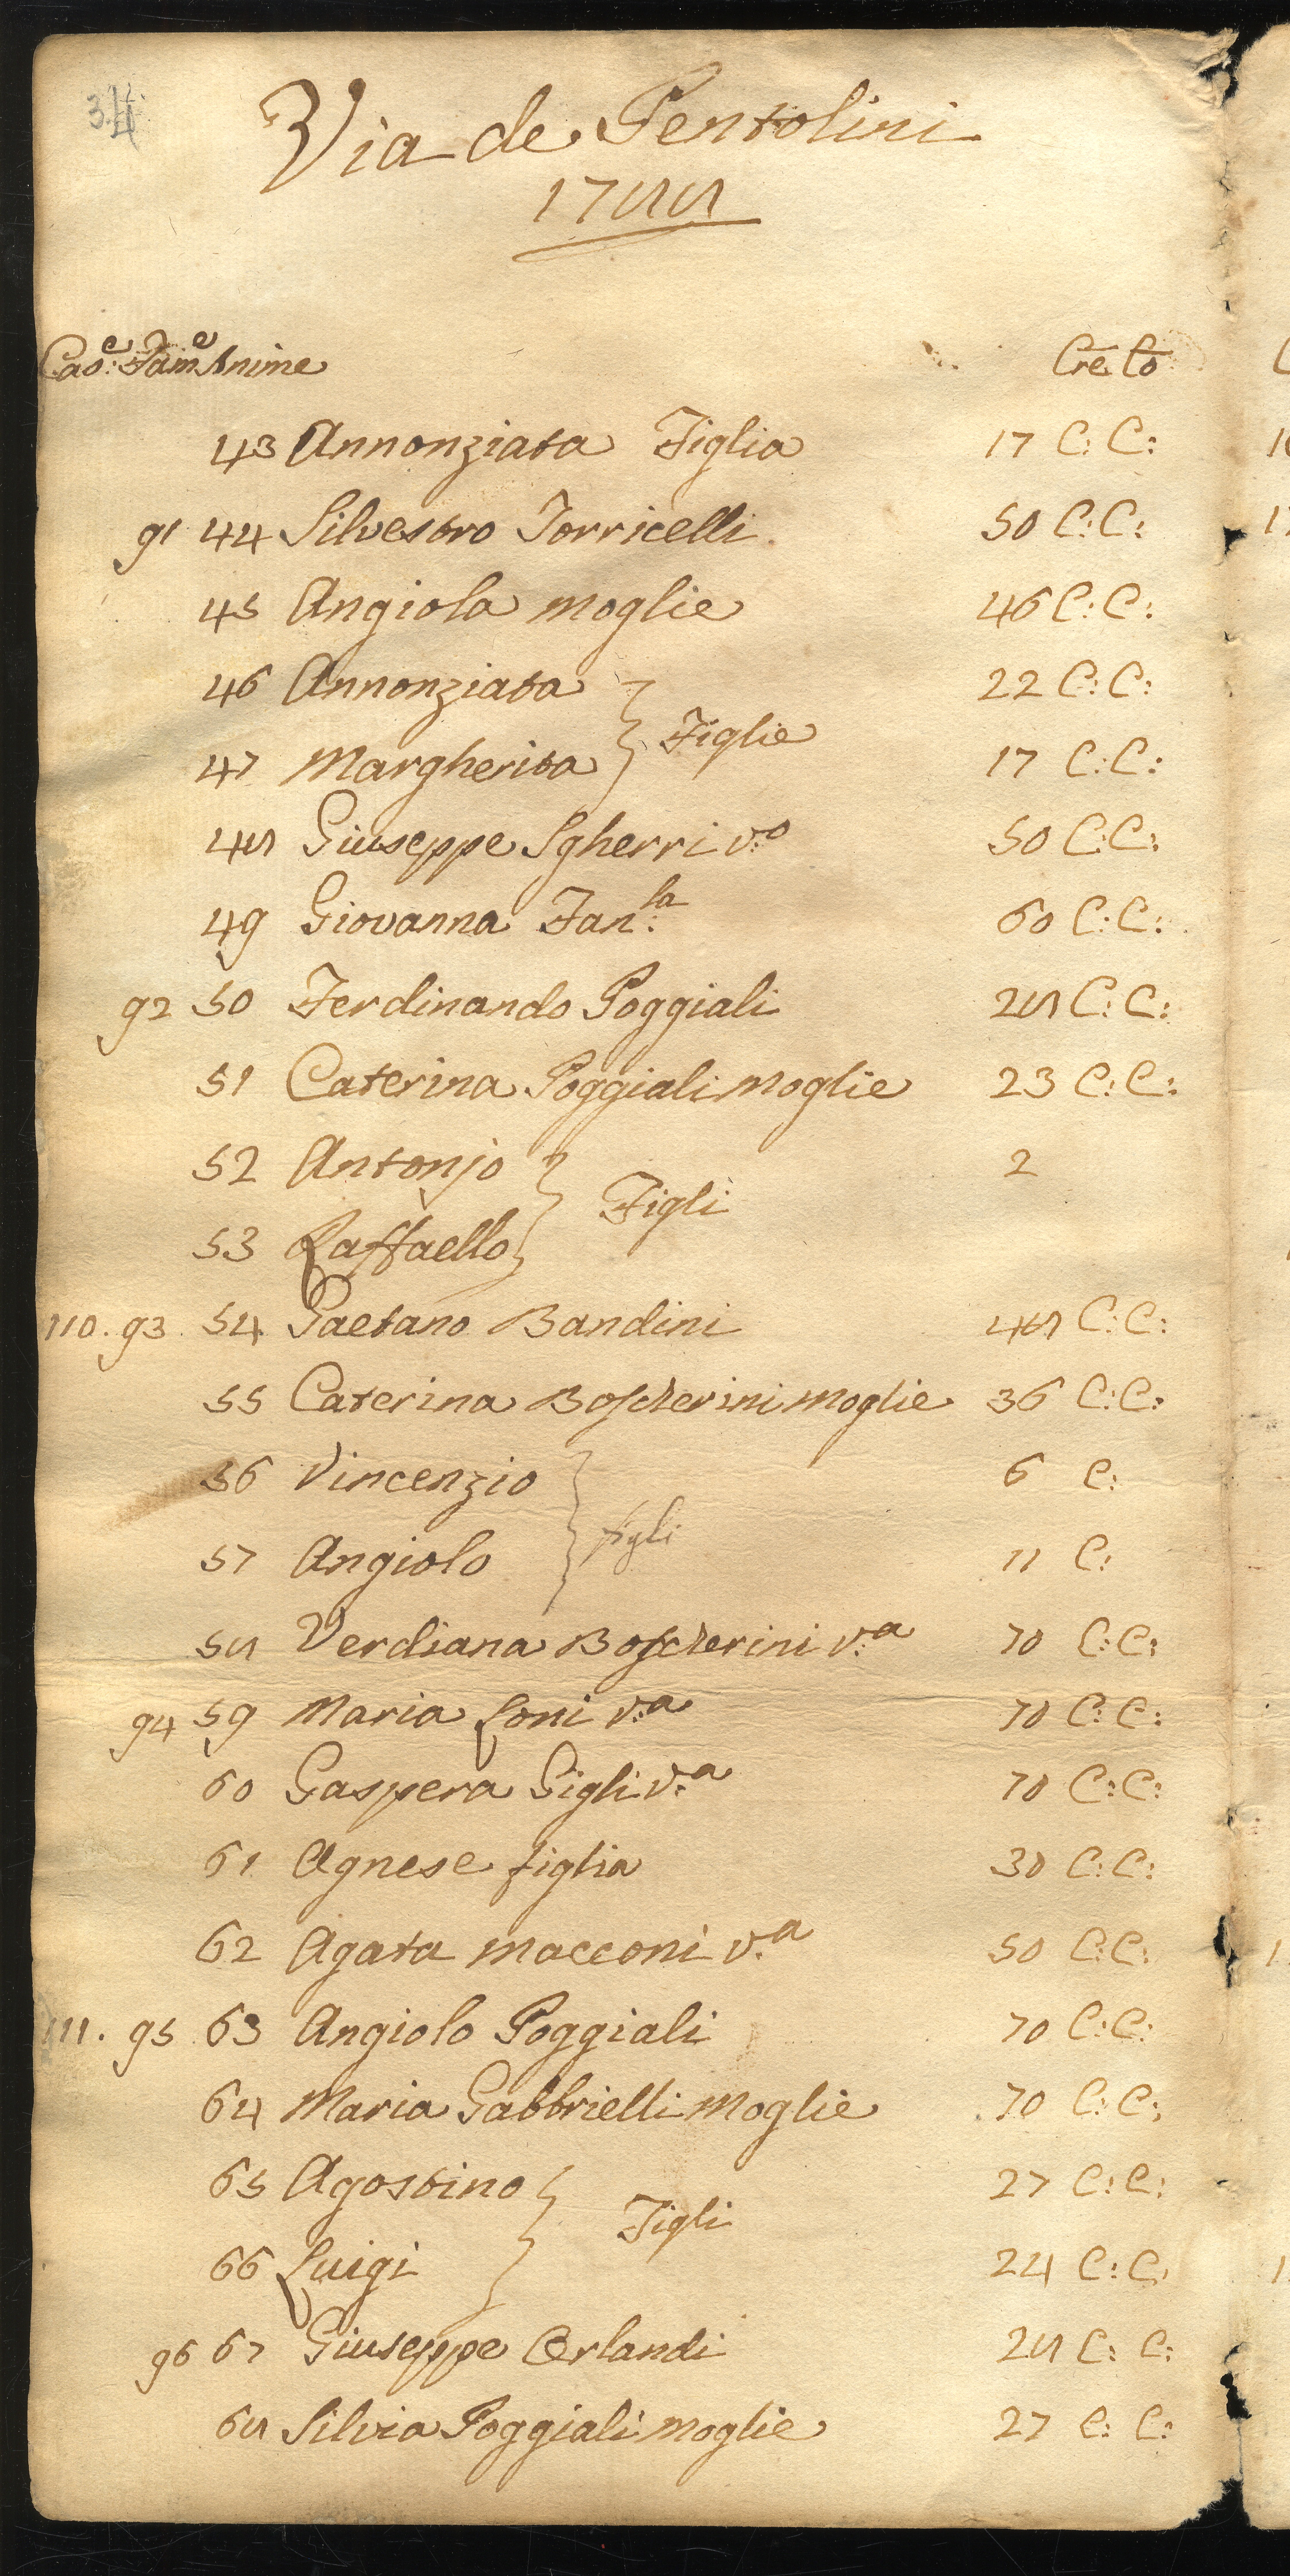 34
Via de Pentolini
1788
Cas:e Fam:e Anime Cre Co
43 Annonziata Figlia 17 C: C:
91 44 Silvestro Torricelli 50 C: C:
45 Angiola moglie 46 C: C:
46 Annonziata 22 C: C:
Figlie
47 Margherita 17 C: C:
48 Giuseppe Sgherri v:o 50 C: C:
49 Giovanna Fan:la 60 C: C:
92 50 Ferdinando Poggiali 28 C: C:
51 Caterina Poggiali moglie 23 C: C:
52 Antonjo 2
Figli
53 Raffaello
110. 93 54 Gaetano Bandini 48 C: C:
55 Caterina Boscherini moglie 36 C: C:
56 Vincenzio 6 C:
figli
57 Angiolo 11 C:
58 Verdiana Boscherini v:a 70 C: C:
94 59 Maria Loni v:a 70 C: C:
60 Gaspera Gigli v:a 70 C: C:
61 Agnese figlia 30 C: C:
62 Agata macconi v:a 50 C: C:
111. 95 63 Angiolo Poggiali 70 C: C:
64 Maria Gabbrielli Moglie 70 C: C:
65 Agostino 27 C: C:
Figli
66 Luigi 24 C: C:
96 67 Giuseppe Orlandi 28 C: C:
68 Silvia Poggiali moglie 27 C: C: